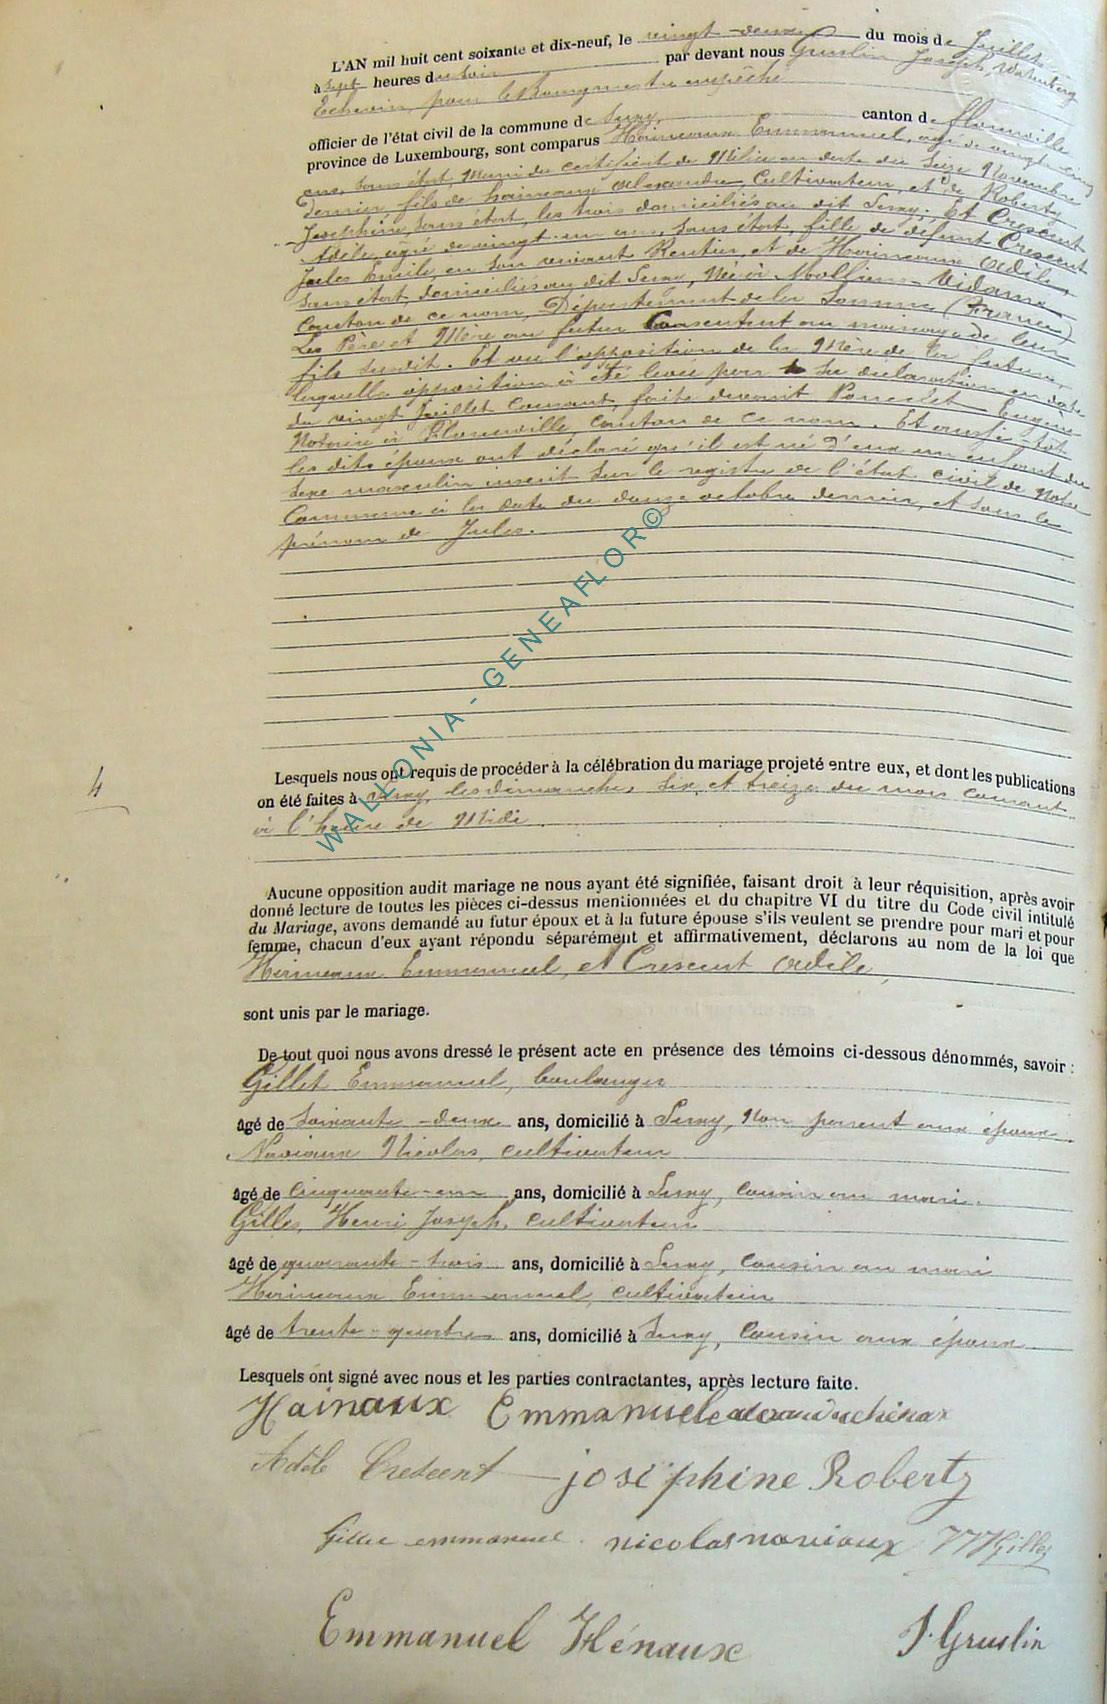 L'AN mil huit cent soixante et dix-neuf, le vingt-deux du mois de Juillet
à sept heures du soir par devant nous Gruslin Joseph,
Echevin, pour le Bourgmestre empêché
officier de l'état civil de la commune de canton de
province de Luxembourg, sont comparus Hainaux Emmanuel, agé de vingt cinq
ans, Sans état, Muni du certificat de Milice en date du seize Novembre
dernier, fils de hainaux alexandre Cultivateur, et de Roberty
Josephine, Sans état, les trois domiciliés au dit ; Et Crescent
Adèle, agée de vingt-un ans, Sans état, fille de défunt Crescent
Jules Emile, en Son vivant Rentier, et de Odile,
Sans état, domiciliés au dit , Née à Molliens-Vidame
Canton de ce nom, Département de la Somme (France)
Les Père et Mère au futur Consentent au mariage de leur
fils susdit. Et vu l'opposition de la Mère de la future,
laquelle opposition à été levée par Sa déclaration en date
du vingt Juillet Courant, faite devant Poncelet Eugène
Notaire à canton de ce nom. Et aussi-tôt
les dits époux ont déclaré qu'il est né d'eux un enfant du
Sexe masculin inscrit Sur le registre de l'état civil de Notre
Commune à la date du douze octobre dernier, et sous le
prénom de Jules.
WALLONIA - GENEAFLOR©
4
Lesquels nous ont requis de procéder à la célébration du mariage projeté entre eux, et dont les publications
on été faites à les dimanches Six et treize du mois Courant
à l'heure de Midi.
Aucune opposition audit mariage ne nous ayant été signifiée, faisant droit à leur réquisition, après avoir
donné lecture de toutes les pièces ci-dessus mentionnées et du chapitre VI du titre du Code civil intitulé
du Mariage, avons demandé au futur époux et à la future épouse s'ils veulent se prendre pour mari et pour
femme, chacun d'eux ayant répondu séparément et affirmativement, déclarons au nom de la loi que
Emmanuel, et Crescent
sont unis par le mariage.
De tout quoi nous avons dressé le présent acte en présence des témoins ci-dessous dénommés, savoir :
Gillet Emmanuel, boulanger
âgé de Soixante-deux ans, domicilié à Non parent aux époux.
Naviaux Nicolas, cultivateur
âgé de Cinquante-un ans, domicilié à cousin au mari.
Gilles, Henri Joseph, cultivateur
âgé de quarante-trois ans, domicilié à Cousin au mari
Emmanuel, cultivateur
âgé de trente-quatre ans, domicilié à Cousin aux époux
Lesquels ont signé avec nous et les parties contractantes, après lecture faite.
Hainaux Emmanuel
Adèle Crescent josèphine Roberty
emmanuel nicolas naviaux Gilles
Emmanuel Hénaux J. Gruslin